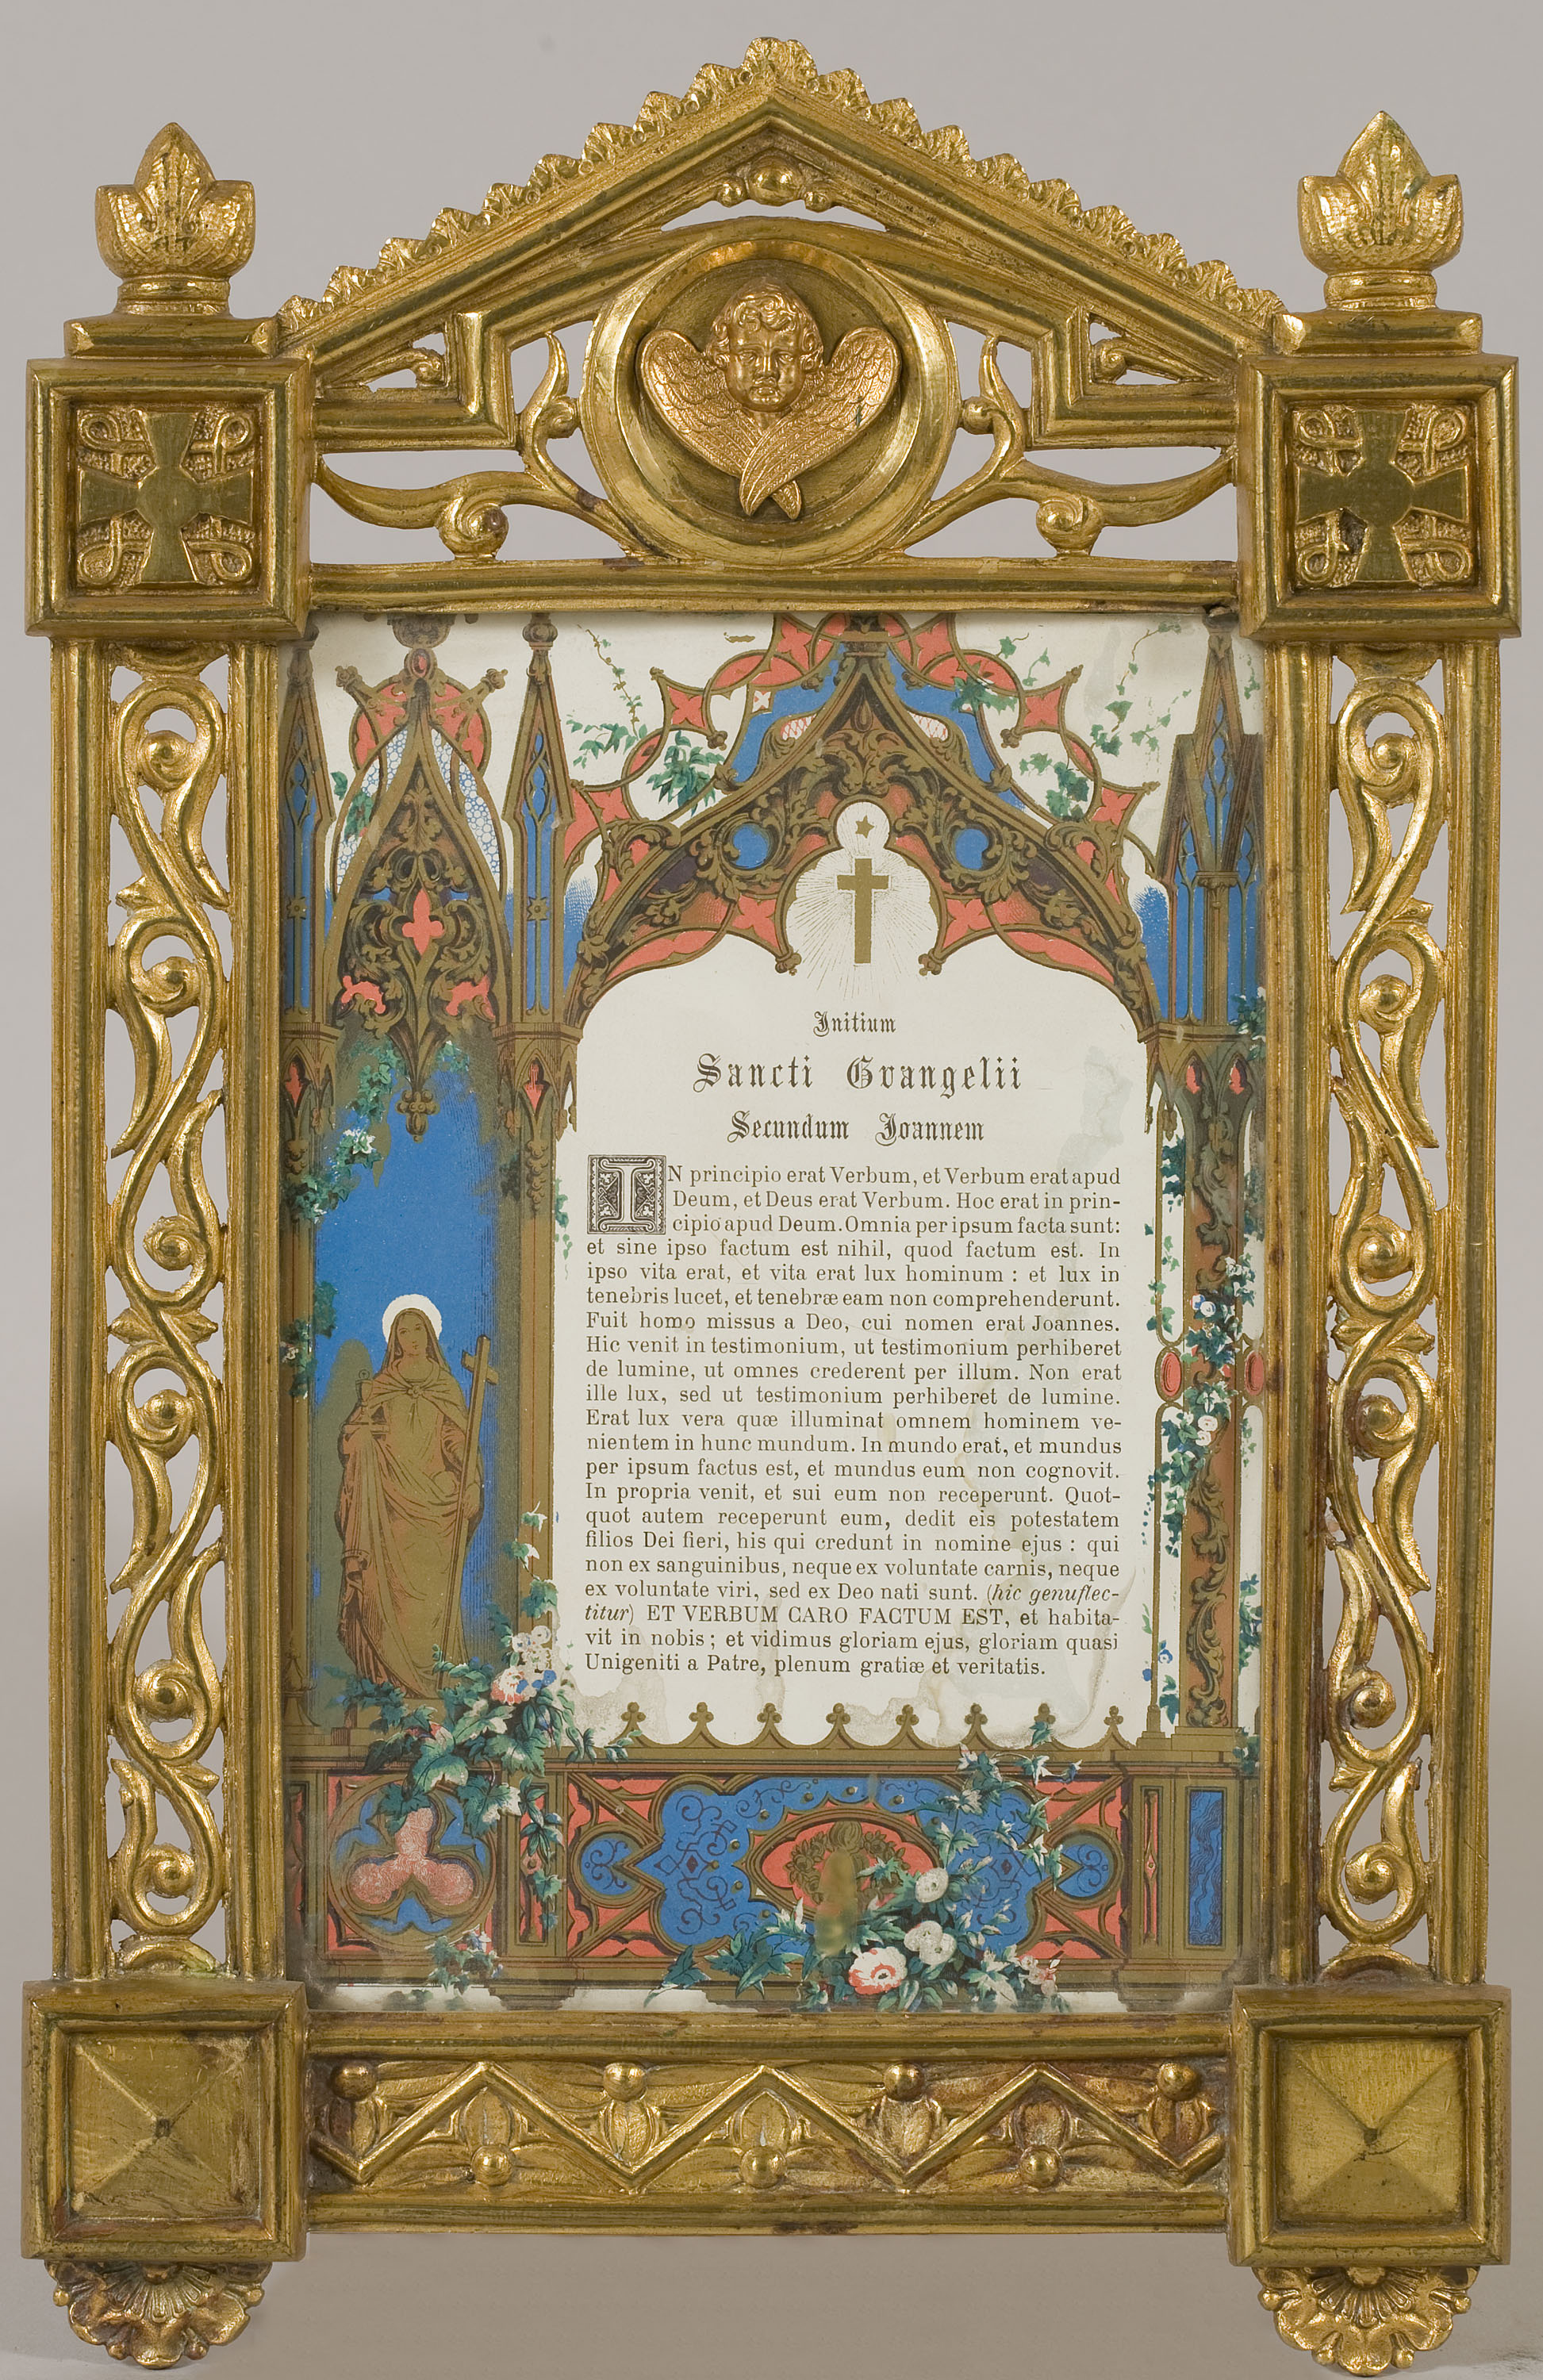 Initium
Sancti Evangelii
Secundum Joannem
IN principio erat Verbum, et Verbum erat apud
Deum, et Deus erat Verbum. Hoc erat in prin-
cipio apud Deum. Omnia per ipsum facta sunt:
et sine ipso factum est nihil, quod factum est. In
ipso vita erat, et vita erat lux hominum : et lux in
tenebris lucet, et tenebræ eam non comprehenderunt.
Fuit homo missus a Deo, cui nomen erat Joannes.
Hic venit in testimonium, ut testimonium perhiberet
de lumine, ut omnes crederent per illum. Non erat
ille lux, sed ut testimonium perhiberet de lumine.
Erat lux vera quæ illuminat omnem hominem ve-
nientem in hunc mundum. In mundo erat, et mundus
per ipsum factus est, et mundus eum non cognovit.
In propria venit, et sui eum non receperunt. Quot-
quot autem receperunt eum, dedit eis potestatem
filios Dei fieri, his qui credunt in nomine ejus : qui
non ex sanguinibus, neque ex voluntate carnis, neque
ex voluntate viri, sed ex Deo nati sunt. (hic genuflec-
titur) ET VERBUM CARO FACTUM EST, et habita-
vit in nobis ; et vidimus gloriam ejus, gloriam quasi
Unigeniti a Patre, plenum gratiæ et veritatis.